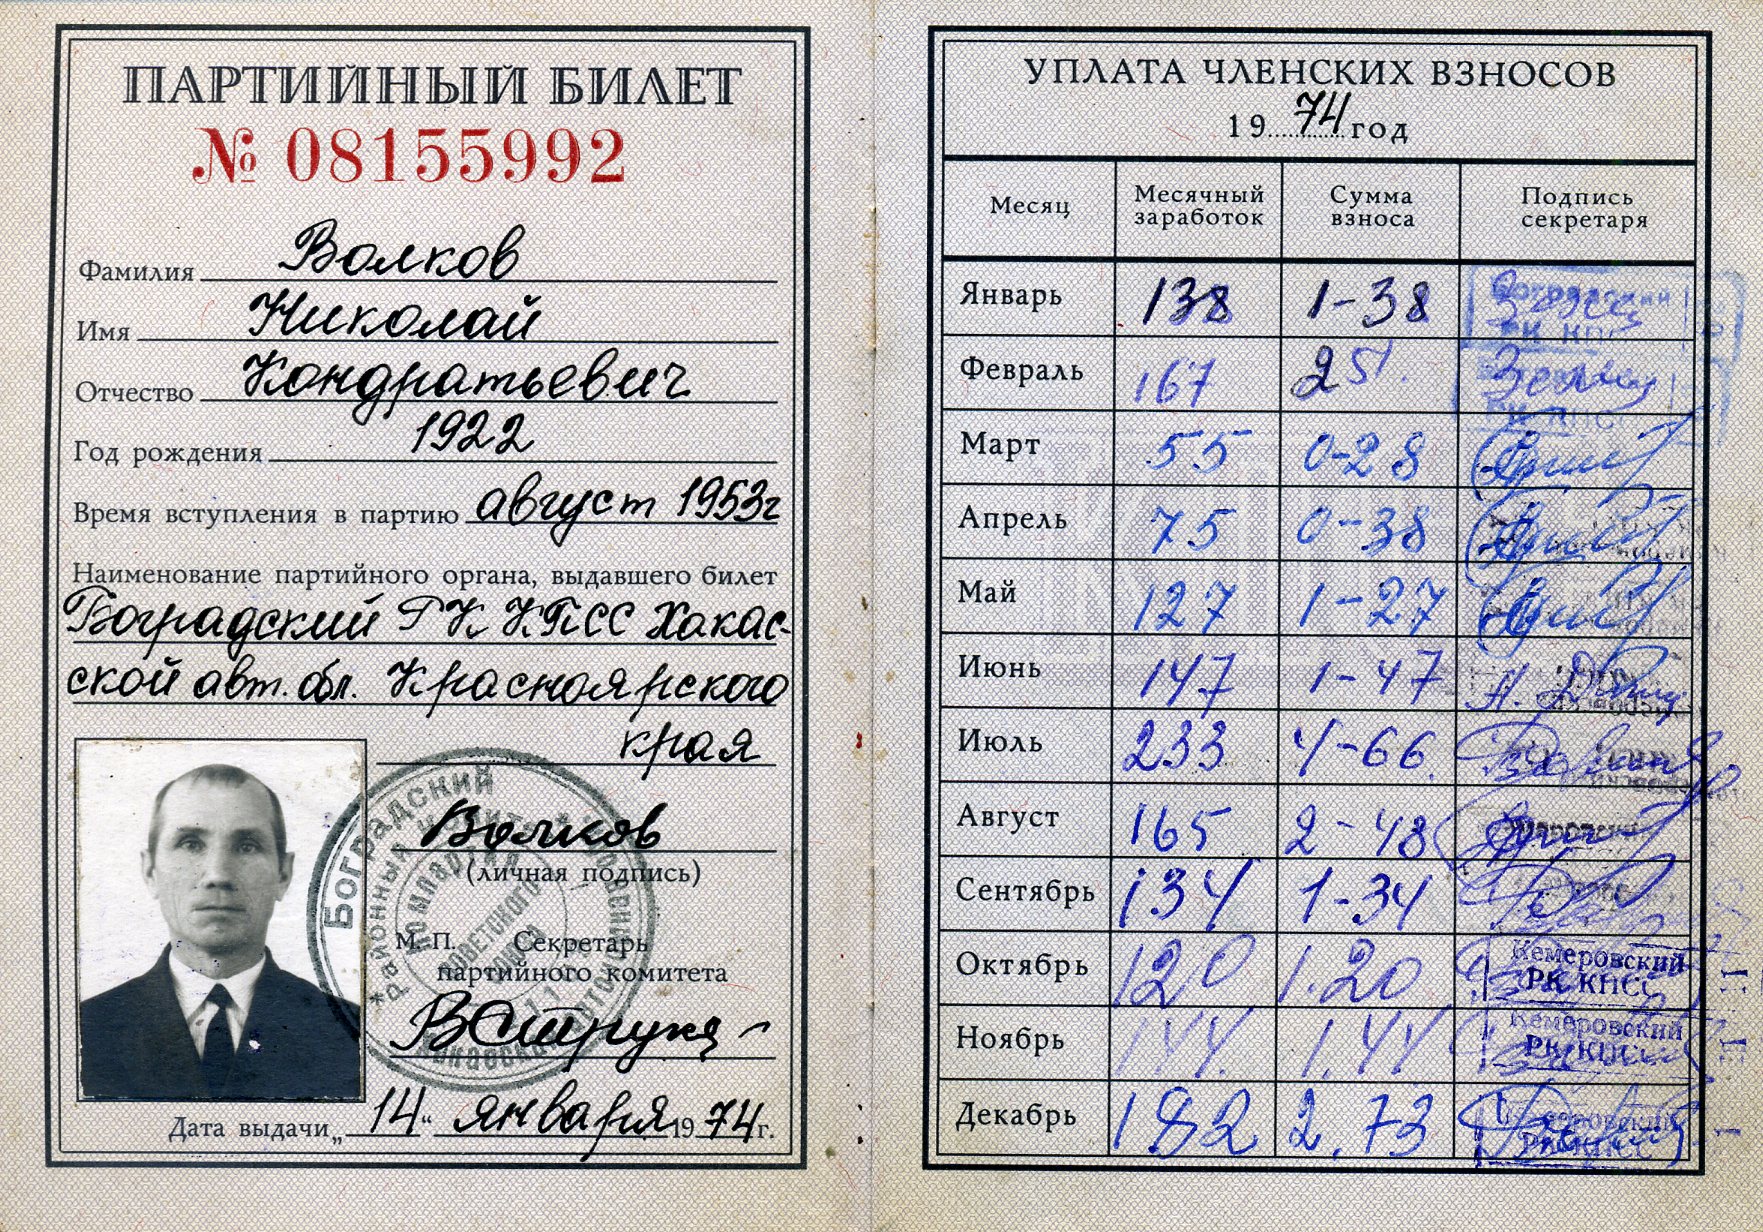 ПАРТИЙНЫЙ БИЛЕТ
№ 08155992
Фамилия Волков
Имя Николай
Отчество Кондратьевич
Год рождения 1922
Время вступления в партию август 1953г
Наименование партийного органа, выдавшего билет
Боградский РК КПСС Хакас-
ской авт. обл. Красноярского
края
Волков
(личная подпись)
М. П. Секретарь
партийного комитета
Дата выдачи „14“ января 1974 г.
Боградский
УПЛАТА ЧЛЕНСКИХ ВЗНОСОВ
1974 год
Месяц Месячный заработок Сумма взноса Подпись секретаря
Январь 138 1-38 Боградский РК КПСС
Февраль 167 2 51. РК КПСС
Март 55 0-28
Апрель 75 0-38
Май 127 1-27
Июнь 147 1-47
Июль 233 4-66.
Август 165 2-48
Сентябрь 134 1-34
Октябрь 120 1.20 Кемеровский РК КПСС
Ноябрь 144. 1.44 Кемеровский РК КПСС
Декабрь 182 2.73 Кемеровский РК КПСС